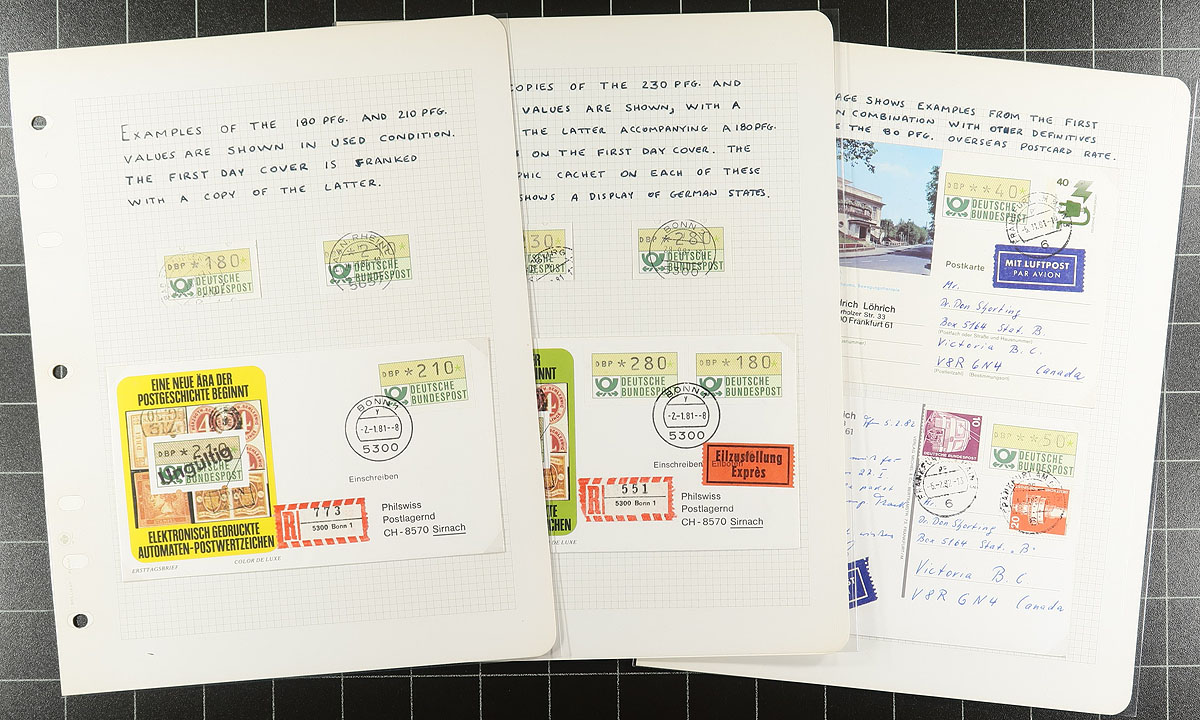 EXAMPLES OF THE 180 PFG. AND 210 PFG.
VALUES ARE SHOWN IN USED CONDITION.
THE FIRST DAY COVER IS FRANKED
WITH A COPY OF THE LATTER.
DBP *180*
DEUTSCHE
BUNDESPOST
DEUTSCHE
BUNDESPOST
EINE NEUE ÄRA DER
POSTGESCHICHTE BEGINNT
Ungültig
ELEKTRONISCH GEDRUCKTE
AUTOMATEN-POSTWERTZEICHEN
ERSTTAGSBRIEF
COLOR DE LUXE
DBP *210*
DEUTSCHE
BUNDESPOST
BONN 1
-2.-1.81--8
5300
Einschreiben
R
773
5300 Bonn 1
Philswiss
Postlagernd
CH-8570 Sirnach
COPIES OF THE 230 PFG. AND
VALUES ARE SHOWN, WITH A
THE LATTER ACCOMPANYING A 180 PFG.
ON THE FIRST DAY COVER. THE
PHIC CACHET ON EACH OF THESE
SHOWS A DISPLAY OF GERMAN STATES.
DBP *280*
DEUTSCHE
BUNDESPOST
BONN
5300
DBP *280*
DEUTSCHE
BUNDESPOST
DBP *180*
DEUTSCHE
BUNDESPOST
BONN 1
-2.-1.81--8
5300
Einschreiben
Eilzustellung
Exprès
R
551
5300 Bonn 1
Philswiss
Postlagernd
CH-8570 Sirnach
DE LUXE
AGE SHOWS EXAMPLES FROM THE FIRST
N COMBINATION WITH OTHER DEFINITIVES
E THE 80 PFG. OVERSEAS POSTCARD RATE.
DBP **40*
DEUTSCHE
BUNDESPOST
40
6
Postkarte
MIT LUFTPOST
PAR AVION
rich Löhrich
erholzer Str. 33
Frankfurt 61
Mr.
Dr. Don Shorting
Box 5164 Stat. B.
Victoria B.C.
V8R 6N4 Canada
10
DEUTSCHE BUNDESPOST
DBP **50*
DEUTSCHE
BUNDESPOST
20
6
Dr. Don Shorting
Box 5164 Stat. "B"
Victoria B.C.
V8R 6N4 Canada